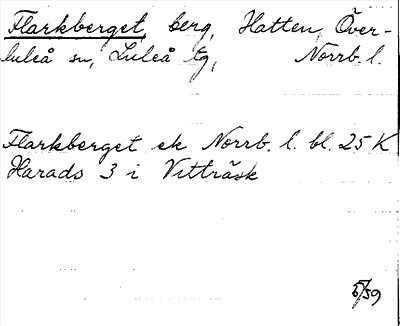 Flarkberget, berg, Hatten, Över-
luleå sn, Luleå tg, Norrb. l.
Flarkberget ek Norrb. l. bl. 25 K
Harads 3 i Vitträsk
5/59